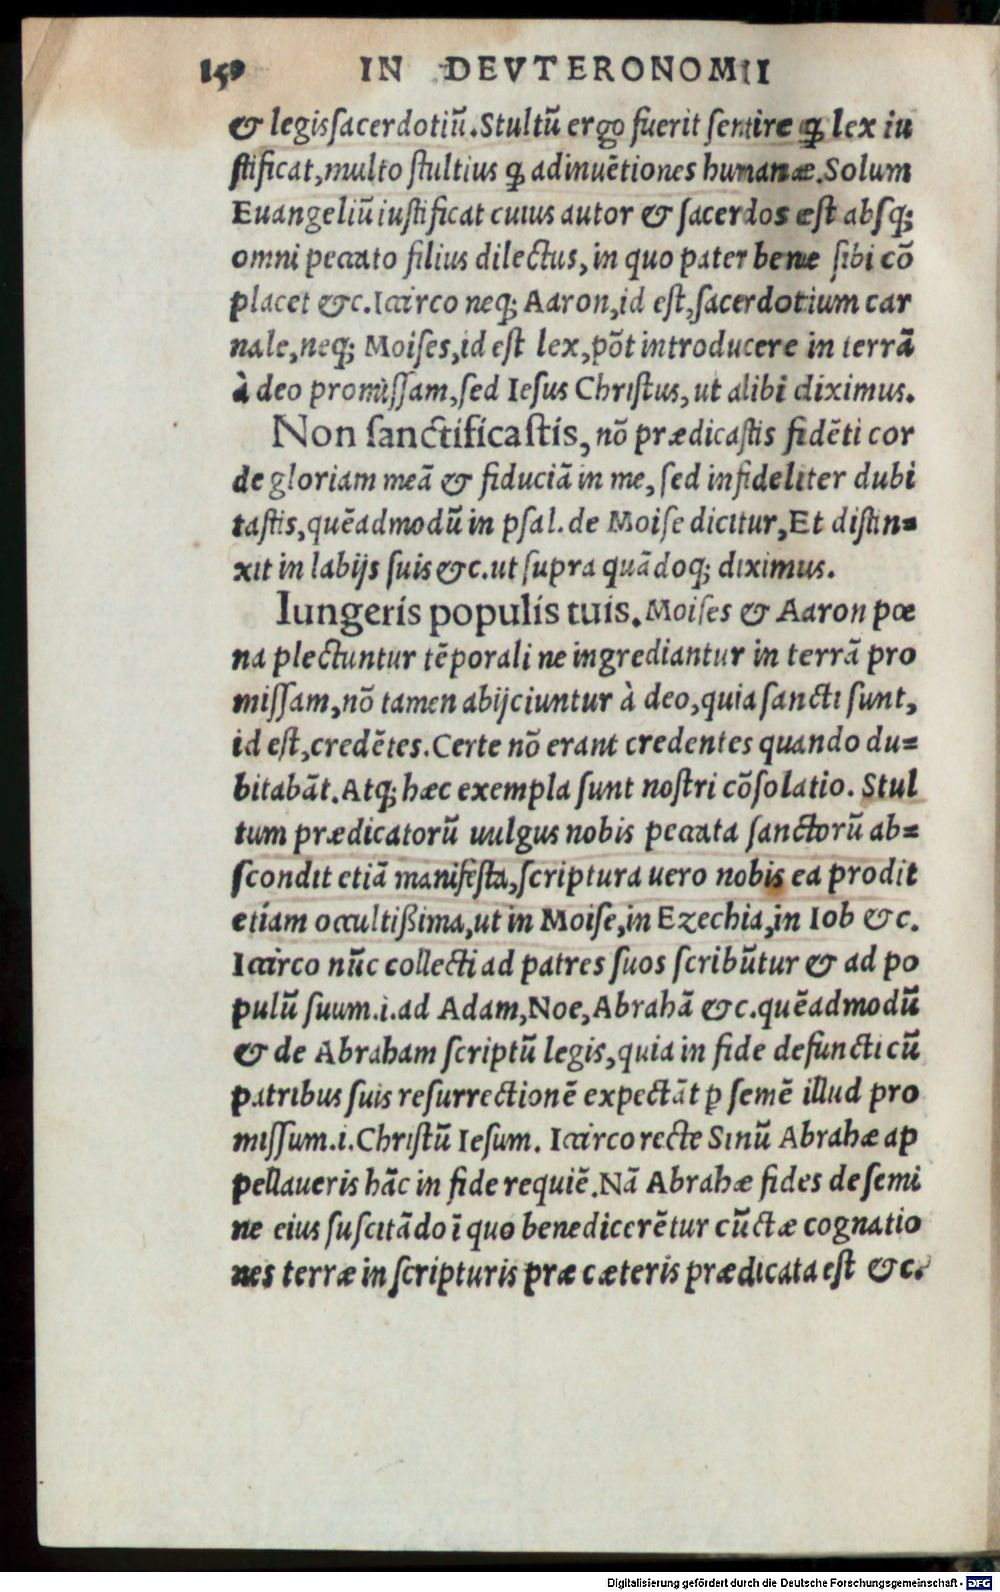 150 IN DEVTERONOMII
& legis sacerdotiũ. Stultũ ergo fuerit sentire ꝙ lex iu
stificat, multo stultius ꝙ adinuẽtiones humanæ. Solum
Euangeliũ iustificat cuius autor & sacerdos est absq;
omni peccato filius dilectus, in quo pater bene sibi cõ
placet &c. Iccirco neq; Aaron, id est, sacerdotium car
nale, neq; Moises, id est lex, põt introducere in terrã
à deo promissam, sed Iesus Christus, ut alibi diximus.
Non sanctificastis, nõ prædicastis fidẽti cor
de gloriam meã & fiduciã in me, sed infideliter dubi
tastis, quẽadmodũ in psal. de Moise dicitur, Et distin=
xit in labijs suis &c. ut supra quãdoq; diximus.
Iungeris populis tuis. Moises & Aaron pœ
na plectuntur tẽporali ne ingrediantur in terrã pro
missam, nõ tamen abijciuntur à deo, quia sancti sunt,
id est, credẽtes. Certe nõ erant credentes quando du=
bitabãt. Atq; hæc exempla sunt nostri cõsolatio. Stul
tum prædicatorũ uulgus nobis peccata sanctorũ ab=
scondit etiã manifesta, scriptura uero nobis ea prodit
etiam occultißima, ut in Moise, in Ezechia, in Iob &c.
Iccirco nũc collecti ad patres suos scribũtur & ad po
pulũ suum .i. ad Adam, Noe, Abrahã &c. quẽadmodũ
& de Abraham scriptũ legis, quia in fide defuncti cũ
patribus suis resurrectionẽ expectãt ꝑ semẽ illud pro
missum .i. Christũ Iesum. Iccirco recte Sinũ Abrahæ ap
pellaueris hãc in fide requiẽ. Nã Abrahæ fides de semi
ne eius suscitãdo ĩ quo benedicerẽtur cũctæ cognatio
nes terræ in scripturis præ cæteris prædicata est &c.
Digitalisierung gefördert durch die Deutsche Forschungsgemeinschaft - DFG